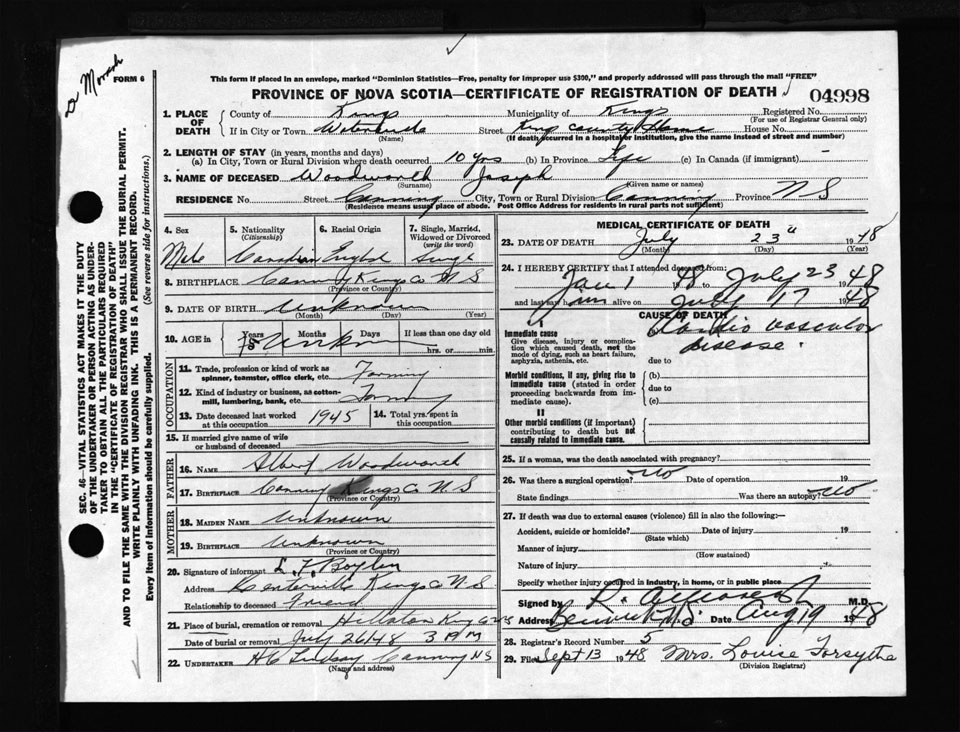 FORM 6
This form if placed in an envelope, marked "Dominion Statistics—Free, penalty for improper use $300," and properly addressed will pass through the mail "FREE"
PROVINCE OF NOVA SCOTIA—CERTIFICATE OF REGISTRATION OF DEATH
04998
SEC. 46—VITAL STATISTICS ACT MAKES IT THE DUTY
OF THE UNDERTAKER OR PERSON ACTING AS UNDER-
TAKER TO OBTAIN ALL THE PARTICULARS REQUIRED
IN THE "CERTIFICATE OF REGISTRATION OF DEATH"
AND TO FILE THE SAME WITH THE DIVISION REGISTRAR WHO SHALL ISSUE THE BURIAL PERMIT.
WRITE PLAINLY WITH UNFADING INK. THIS IS A PERMANENT RECORD.
Every item of information should be carefully supplied. (See reverse side for instructions.)
1. PLACE OF DEATH
County of Kings Municipality of Kings Registered No.
(For use of Registrar General only)
If in City or Town Street King County Home House No.
(Name) (If death occurred in a hospital or institution, give the name instead of street and number)
2. LENGTH OF STAY (in years, months and days)
(a) In City, Town or Rural Division where death occurred 10 yrs (b) In Province Life (c) In Canada (if immigrant) —
3. NAME OF DECEASED Woodworth Joseph
(Surname) (Given name or names)
RESIDENCE No. Street Canning City, Town or Rural Division Canning Province N S
(Residence means usual place of abode. Post Office Address for residents in rural parts not sufficient)
4. Sex 5. Nationality (Citizenship) 6. Racial Origin 7. Single, Married, Widowed or Divorced (write the word)
Male Canadian Single
8. BIRTHPLACE Canning Kings Co N S
(Province or Country)
9. DATE OF BIRTH Unknown
(Month) (Day) (Year)
10. AGE in Years Months Days If less than one day old
75 hrs. or min.
OCCUPATION
11. Trade, profession or kind of work as spinner, teamster, office clerk, etc. Farming
12. Kind of industry or business, as cotton-mill, lumbering, bank, etc.
13. Date deceased last worked at this occupation 1945 14. Total yrs. spent in this occupation
15. If married give name of wife or husband of deceased
FATHER
16. NAME Albert Woodworth
17. BIRTHPLACE Canning Kings Co N.S
(Province or Country)
MOTHER
18. MAIDEN NAME Unknown
19. BIRTHPLACE Unknown
(Province or Country)
20. Signature of informant L. F. Boylen
Address Centerville Kings Co N.S
Relationship to deceased Friend
21. Place of burial, cremation or removal Hillaton King Co NS
Date of burial or removal July 26/48 3 P M
22. UNDERTAKER Lindsay Canning NS
(Name and address)
MEDICAL CERTIFICATE OF DEATH
23. DATE OF DEATH July 23" 1948
(Month) (Day) (Year)
24. I HEREBY CERTIFY that I attended deceased from:
Jan 1 1948 to July 23 1948
and last saw him alive on July 17 1948
CAUSE OF DEATH
I
Immediate cause
Give disease, injury or complication which caused death, not the mode of dying, such as heart failure, asphyxia, asthenia, etc.
(a) Cardio vascular
disease.
due to
Morbid conditions, if any, giving rise to immediate cause (stated in order proceeding backwards from immediate cause).
(b)
due to
(c)
II
Other morbid conditions (if important) contributing to death but not causally related to immediate cause.
25. If a woman, was the death associated with pregnancy?
26. Was there a surgical operation? No Date of operation 19
State findings Was there an autopsy? No
27. If death was due to external causes (violence) fill in also the following:—
Accident, suicide or homicide? Date of injury 19
(State which)
Manner of injury
(How sustained)
Nature of injury
Specify whether injury occurred in industry, in home, or in public place
Signed by M.D.
Address Berwick N.S. Date Aug 19 1948
28. Registrar's Record Number 5
29. Filed Sept 13 1948 Mrs. Louise Forsythe
(Division Registrar)